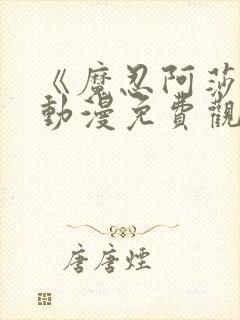 《魔忍阿莎
動漫免費觀
唐唐煙